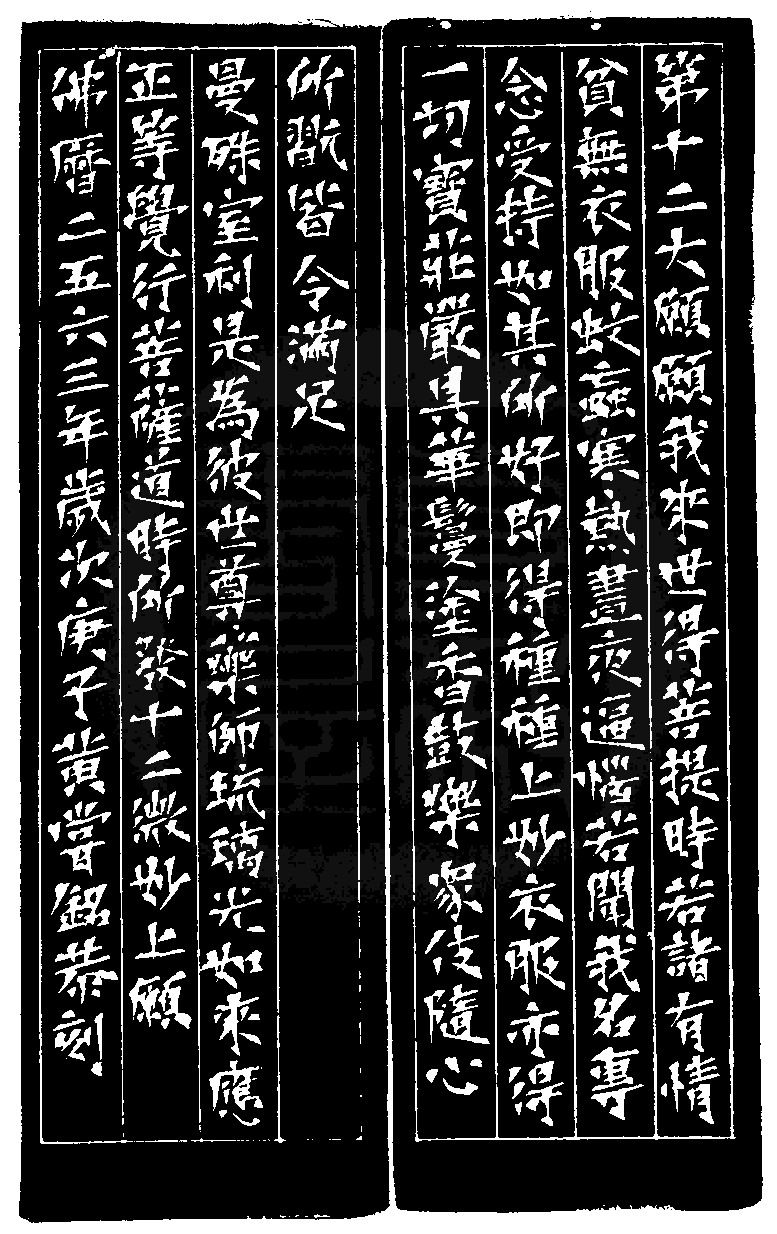 第十二大願願我來世得菩提時若諸有情
貧無衣服蚊蝱寒熱晝夜逼惱若聞我名專
念受持如其所好即得種種上妙衣服亦得
一切寶莊嚴具華鬘塗香鼓樂衆伎隨心
所翫皆令滿足
曼殊室利是為彼世尊藥師琉璃光如來應
正等覺行菩薩道時所發十二微妙上願
佛曆二五六三年歲次庚子黄嘗銘恭刻